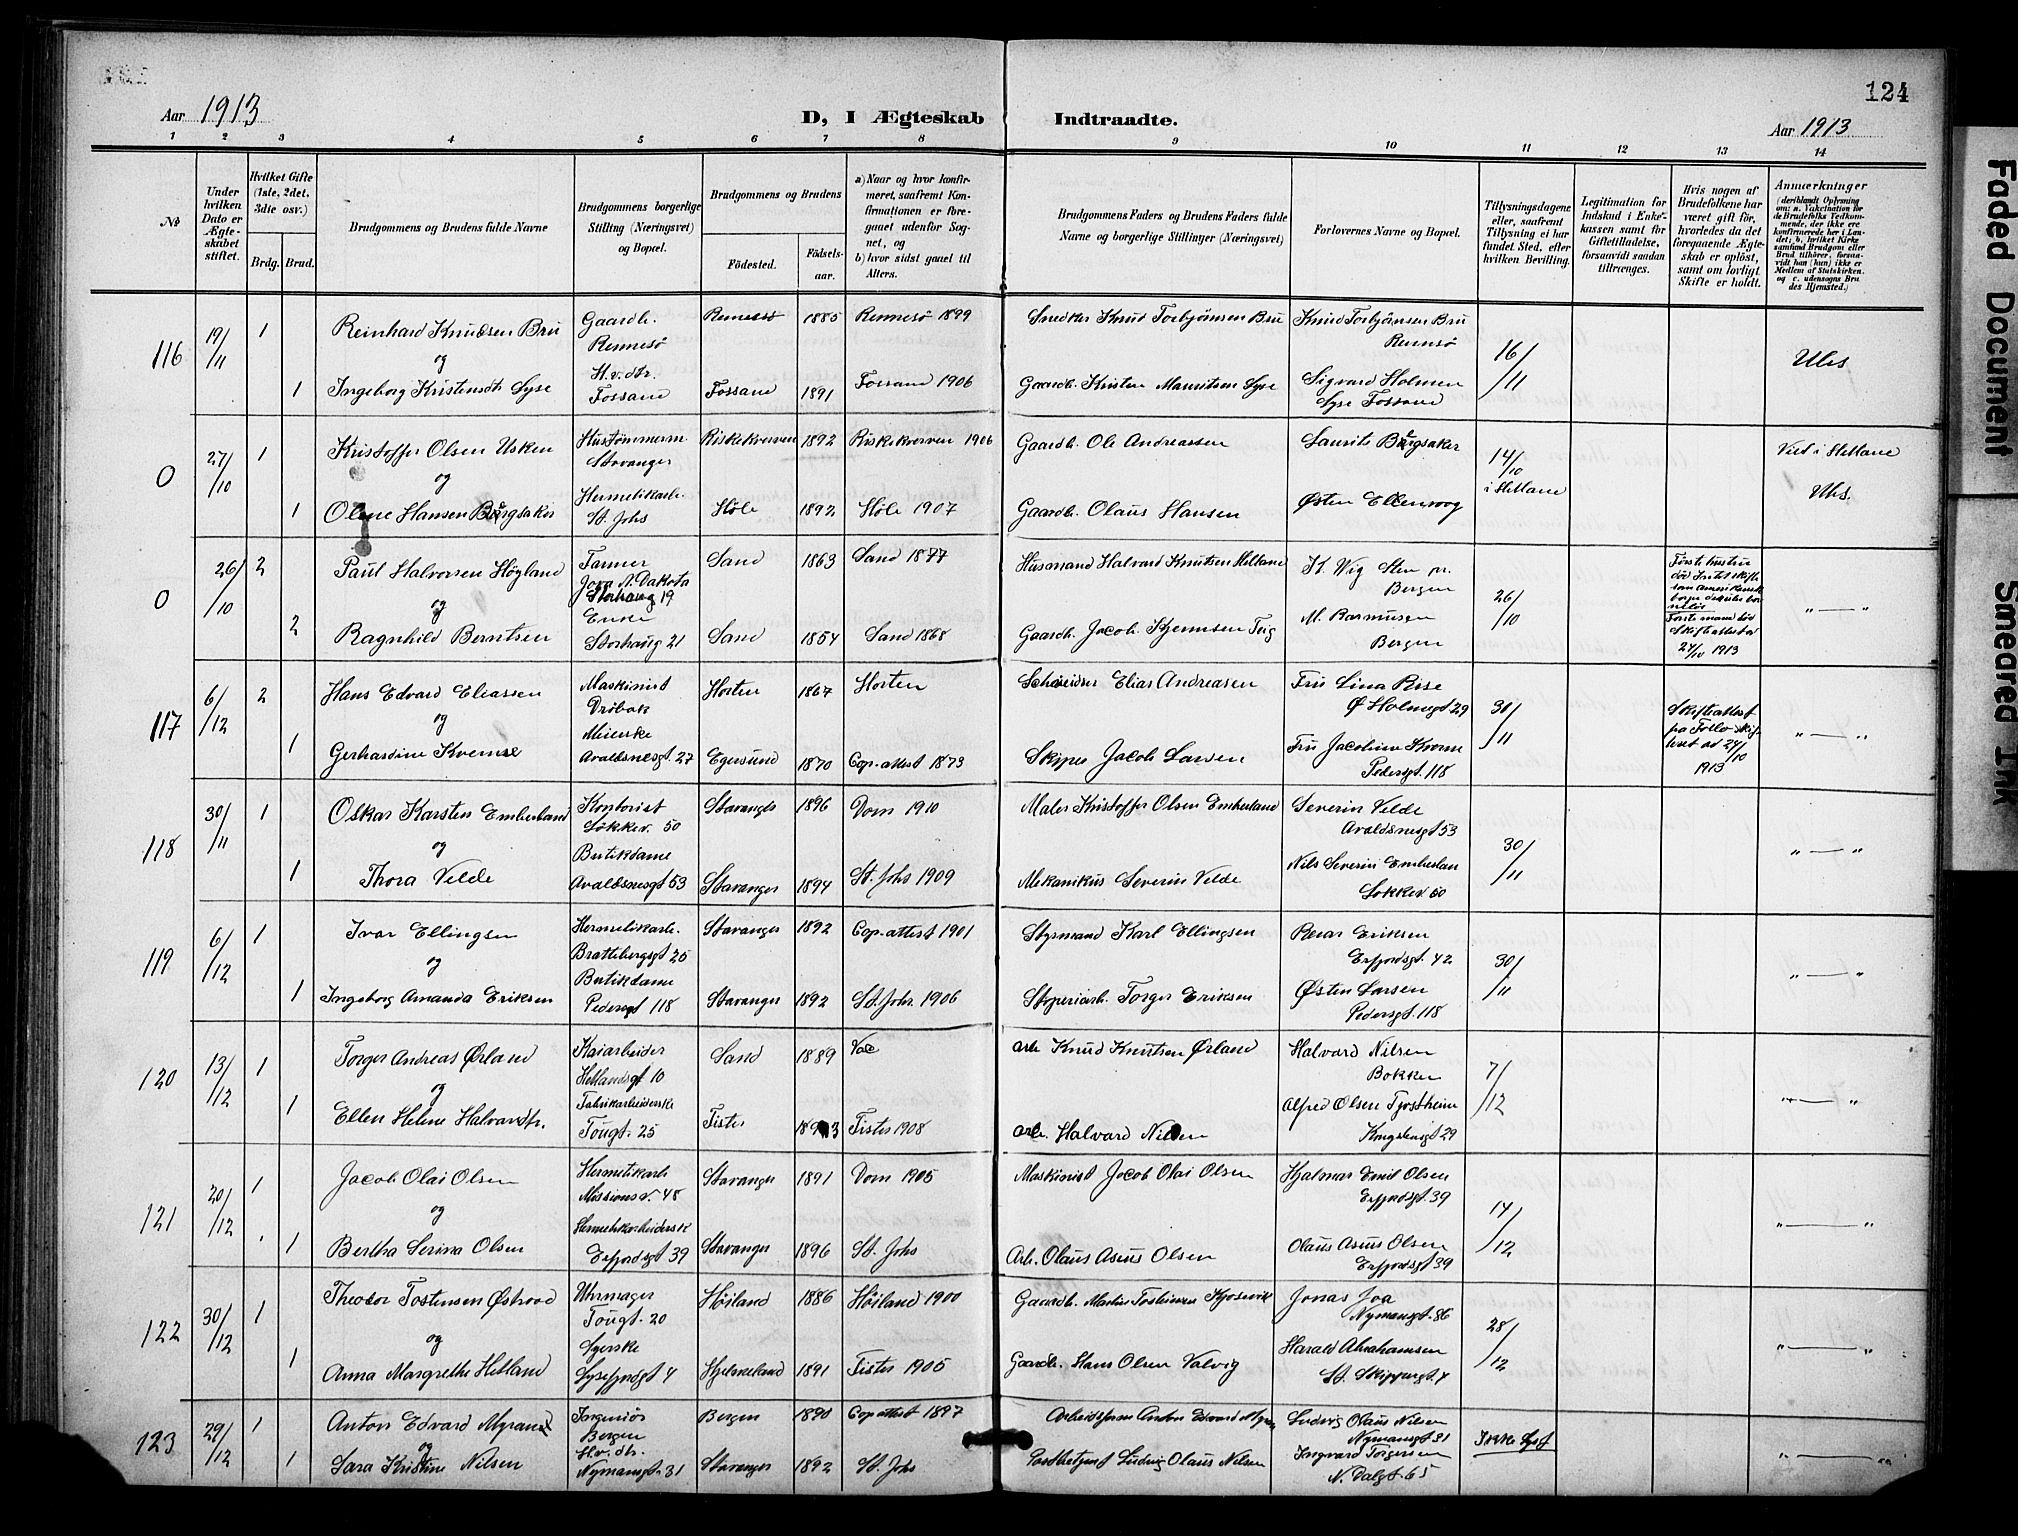 124
Aar 1913
D, I Ægteskab Indtraadte.
Aar 1913
1 2 3 4 5 6 7 8 9 10 11 12 13 14
№
Under hvilken Dato er Ægteskabet stiftet.
Hvilket Gifte (1ste, 2det, 3die osv.)
Brdg. Brud.
Brudgommens og Brudens fulde Navne
Brudgommens borgerlige Stilling (Næringsvei) og Bopæl.
Brudgommens og Brudens
Fødested. Fødselsaar.
a) Naar og hvor konfirmeret, saafremt Konfirmationen er foregaaet udenfor Sognet, og
b) hvor sidst gaaet til Alters.
Brudgommens Faders og Brudens Faders fulde Navne og borgerlige Stillinger (Næringsvei)
Forlovernes Navne og Bopæl.
Tillysningsdagene eller, saafremt Tillysning ei har fundet Sted, efter hvilken Bevilling.
Legitimation for Indskud i Enkekassen samt for Giftetilladelse, forsaavidt saadan tiltrænges.
Hvis nogen af Brudefolkene har været gift før, hvorledes da det foregaaende Ægteskab er opløst, samt om lovligt Skifte er holdt.
Anmærkninger
(deriblandt Oplysning om: a. Vakcination for de Brudefolks Vedkommende, der ikke ere konfirmerede her i Landet; b. hvilket Kirkesamfund Brudgom eller Brud tilhører, forsaavidt han (hun) ikke er Medlem af Statskirken, og c. udensogns Brudes Hjemsted.)
116 19/11 1 Reinhard Knudsen Bru Gaardb. Rennesø Rennesø 1885 Rennesø 1899 Snedker Knud Torbjörnsen Bru Knud Torbjörnsen Bru Rennsø 16/11
og
1 Ingeborg Kristensdt. Lyse H.v.dtr. Fossand Fossand 1891 Fossand 1906 Gaardb. Kristen Mauritsen Lyse Sigvard Holmen Lyse Fossand
0 27/10 1 Kristoffer Olsen Usken Hustømmerm. Stavanger Riskekverven 1892 Riskekverven 1906 Gaardb. Ole Andreassen Laurits 14/10 i Hetland Viet i Hetland
og
1 Olene Hansen Hermetikarb. St. Johs Høle 1892 Høle 1907 Gaardb. Olaus Hansen Østen Ellenvoog
0 26/10 2 Paul Halvorsen Høyland Farmer N. Dakota Storhaug 19 Sand 1863 Sand 1877 Husmand Halvard Knutsen Hetland K. Wig Sten pr. Bergen 26/10 „ — „
og
2 Ragnhild Berntsen Enke Storhaug 21 Sand 1854 Sand 1868 Gaardb. Jacob Teig M. Rasmusen Bergen
24/10 1913
117 6/12 2 Hans Edvard Eliassen Maskinist Drøbak Horten 1867 Horten Elias Andreasen Fru Lina Rise Ø Holmegt 29 30/11 Skifteattest fra Follo 24/10 1913 „ — „
og
1 Gerhardine Kverne Meierske Avaldsnesgt. 27 Egersund 1870 Cop. attest 1873 Skipper Jacob Larsen Fru Jacobine Kverne Pedersgt. 118
118 30/11 1 Oskar Karsten Emberland Kontorist Løkkev. 50 Stavanger 1896 Dom 1910 Maler Kristoffer Olsen Emberland Severin Velde Avaldsnesgt 53 30/11 „ — „
og
1 Thora Velde Butikdame Avaldsnesgt 53 Stavanger 1894 St. Johs 1909 Mekanikus Severin Velde Nils Severin Emberlan Løkkev. 50
119 6/12 1 Ivar Ellingsen Hermetikarb. Brattebergsgt 25 Stavanger 1892 Cop. attest 1901 Styrmand Karl Ellingsen Reiar Eriksen Erfjordsgt. 42 30/11 „ — „
og
1 Ingeborg Amanda Eriksen Butikdame Pedersgt 118 Stavanger 1892 St. Johs. 1906 Støperiarb. Torger Eriksen Østen Larsen Pedersgt. 118
120 13/12 1 Torger Andreas Ørland Kaiarbeider Hetlandsgt 10 Sand 1889 Arb Knud Knutsen Ørland Halvard Nilsen Bokken 7/12 „ — „
og
1 Ellen Helene Halvardtr. Fabrikarbeiderske Tougt. 25 Fister 1893 Fister 1908 Arb. Halvard Nilsen Alfred Olsen Tjostheim Kongsbergt 29
121 20/12 1 Jacob Olai Olsen Hermetikarb Missionsv. 48 Stavanger 1891 Dom 1905 Maskinist Jacob Olai Olsen Hjalmar Emil Olsen Erfjordsgt. 39 14/12 „ — „
og
1 Bertha Serina Olsen Hermetikarbeidersk Erfjordsgt 39 Stavanger 1896 St. Johs Arb. Olaus Asius Olsen Olaus Asius Olsen Erfjordsgt 39
122 30/12 1 Theodor Tostensen Østraad Uhrmager Tougt. 20 Høiland 1886 Høiland 1900 Gaardb. Martin Tosteinsen Jonas Joa Nymansgt. 86 28/12 „ — „
og
1 Anna Margrethe Hetland Syerske Lysefjordgt 4 Hjelmeland 1891 Fister 1905 Gaardb. Hans Olsen Valvig Harald Abrahamsen St. Skippergt. 4
123 29/12 1 Anton Edvard Myrand Ingeniør Bergen Bergen 1890 Cop attest 1897 Arbeidsform Anton Edvard Ludvig Olaus Nilsen Nymansgt 31 Ikke lyst „ — „
og
1 Sara Kristine Nilsen Hv. dtr. Nymansgt. 31 Stavanger 1892 St. Johs Postbetjent Ludvig Olaus Nilsen Ingvard Torgersen N. Dalgt. 65
Faded Document
Smeared Ink